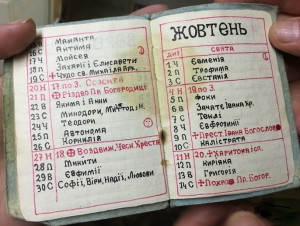 16 С Маманта
17 Ч Антима
18 П Мойсея
18 С Захарії і Єлисавети
19 С +Чудо св. Михаїла Арх.
20 Н 17 по З. Созонта
21 П +Різдво Пр. Богородиці
22 В Якима і Анни
23 С Минодори,
24 Ч Теодори
25 П Автонома
26 С Корнилія
27 Н 18 + Воздвиж. Чесн. Хреста
28 П Микити
29 В Євфимії
30 С Софії, Віри, Надії, Любови
ЖОВТЕНЬ
ДНІ СВЯТА
1 Ч Євменія
2 П Трофима
3 С Євстахія
4 Н 19 по З.
5 П Фоки
6 В Зачатє Івана Хр.
7 С Теклі
8 Ч Євфрозинії
9 П +Прест. Івана Богослова
10 С Калістрата
11 Н 20. + Харитона ісп.
12 П Киріяка
13 В Григорія
14 С +Покров Пр. Богор.